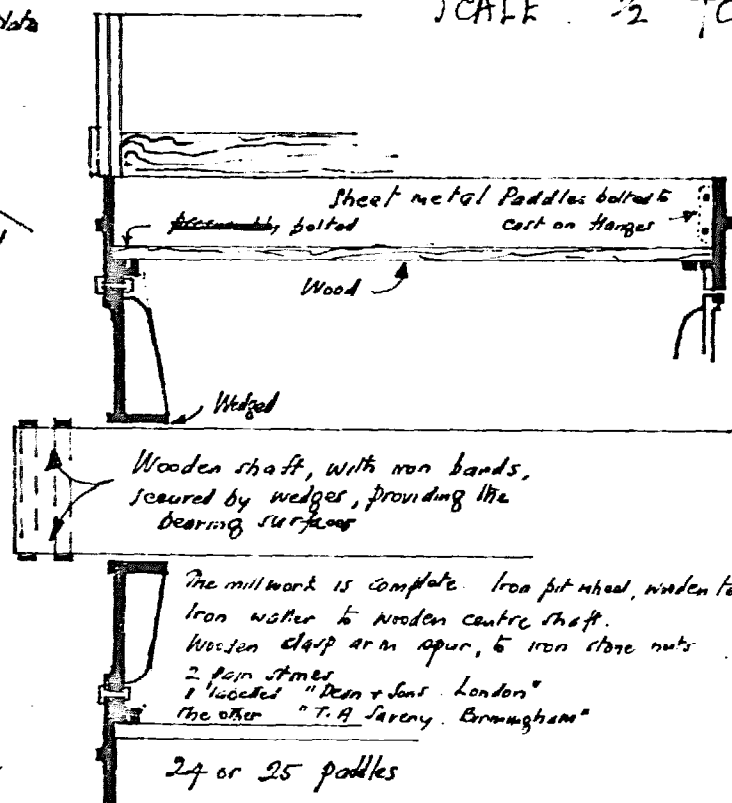 SCALE 1/2 TO
Sheet metal Paddles bolted to
cast on flanges
bolted
Wood
Wedged
Wooden shaft, with iron bands,
secured by wedges, providing the
bearing surfaces
The millwork is complete. Iron pit wheel, wooden
Iron waller to wooden centre shaft.
Wooden clasp arm spur, to iron stone nuts
2 pair stones
1 labelled "Dean & Sons London"
The other "T. A Saveny. Birmingham"
24 or 25 paddles